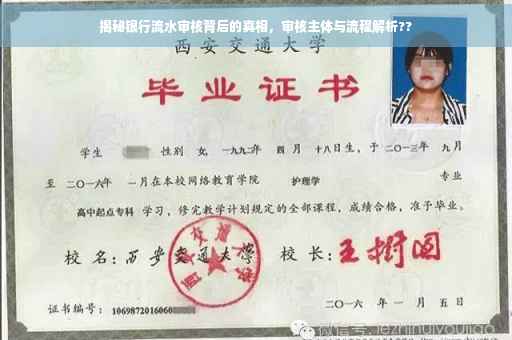 揭秘银行流水审核背后的真相，审核主体与流程解析??
西安交通大学
毕业证书
学生 性别 女, 一九九二年 四月 十八日生，于二〇一三年 九月
至 二〇一六年 一月在本校网络教育学院 护理学 专业
高中起点专科 学习，修完教学计划规定的全部课程，成绩合格，准予毕业。
校 名：西安交通大学 校 长：王树国
西安交通大学
证书编号：1069872016060
二〇一六 年 一 月 五 日
微信号: jezhihuiyoujiao